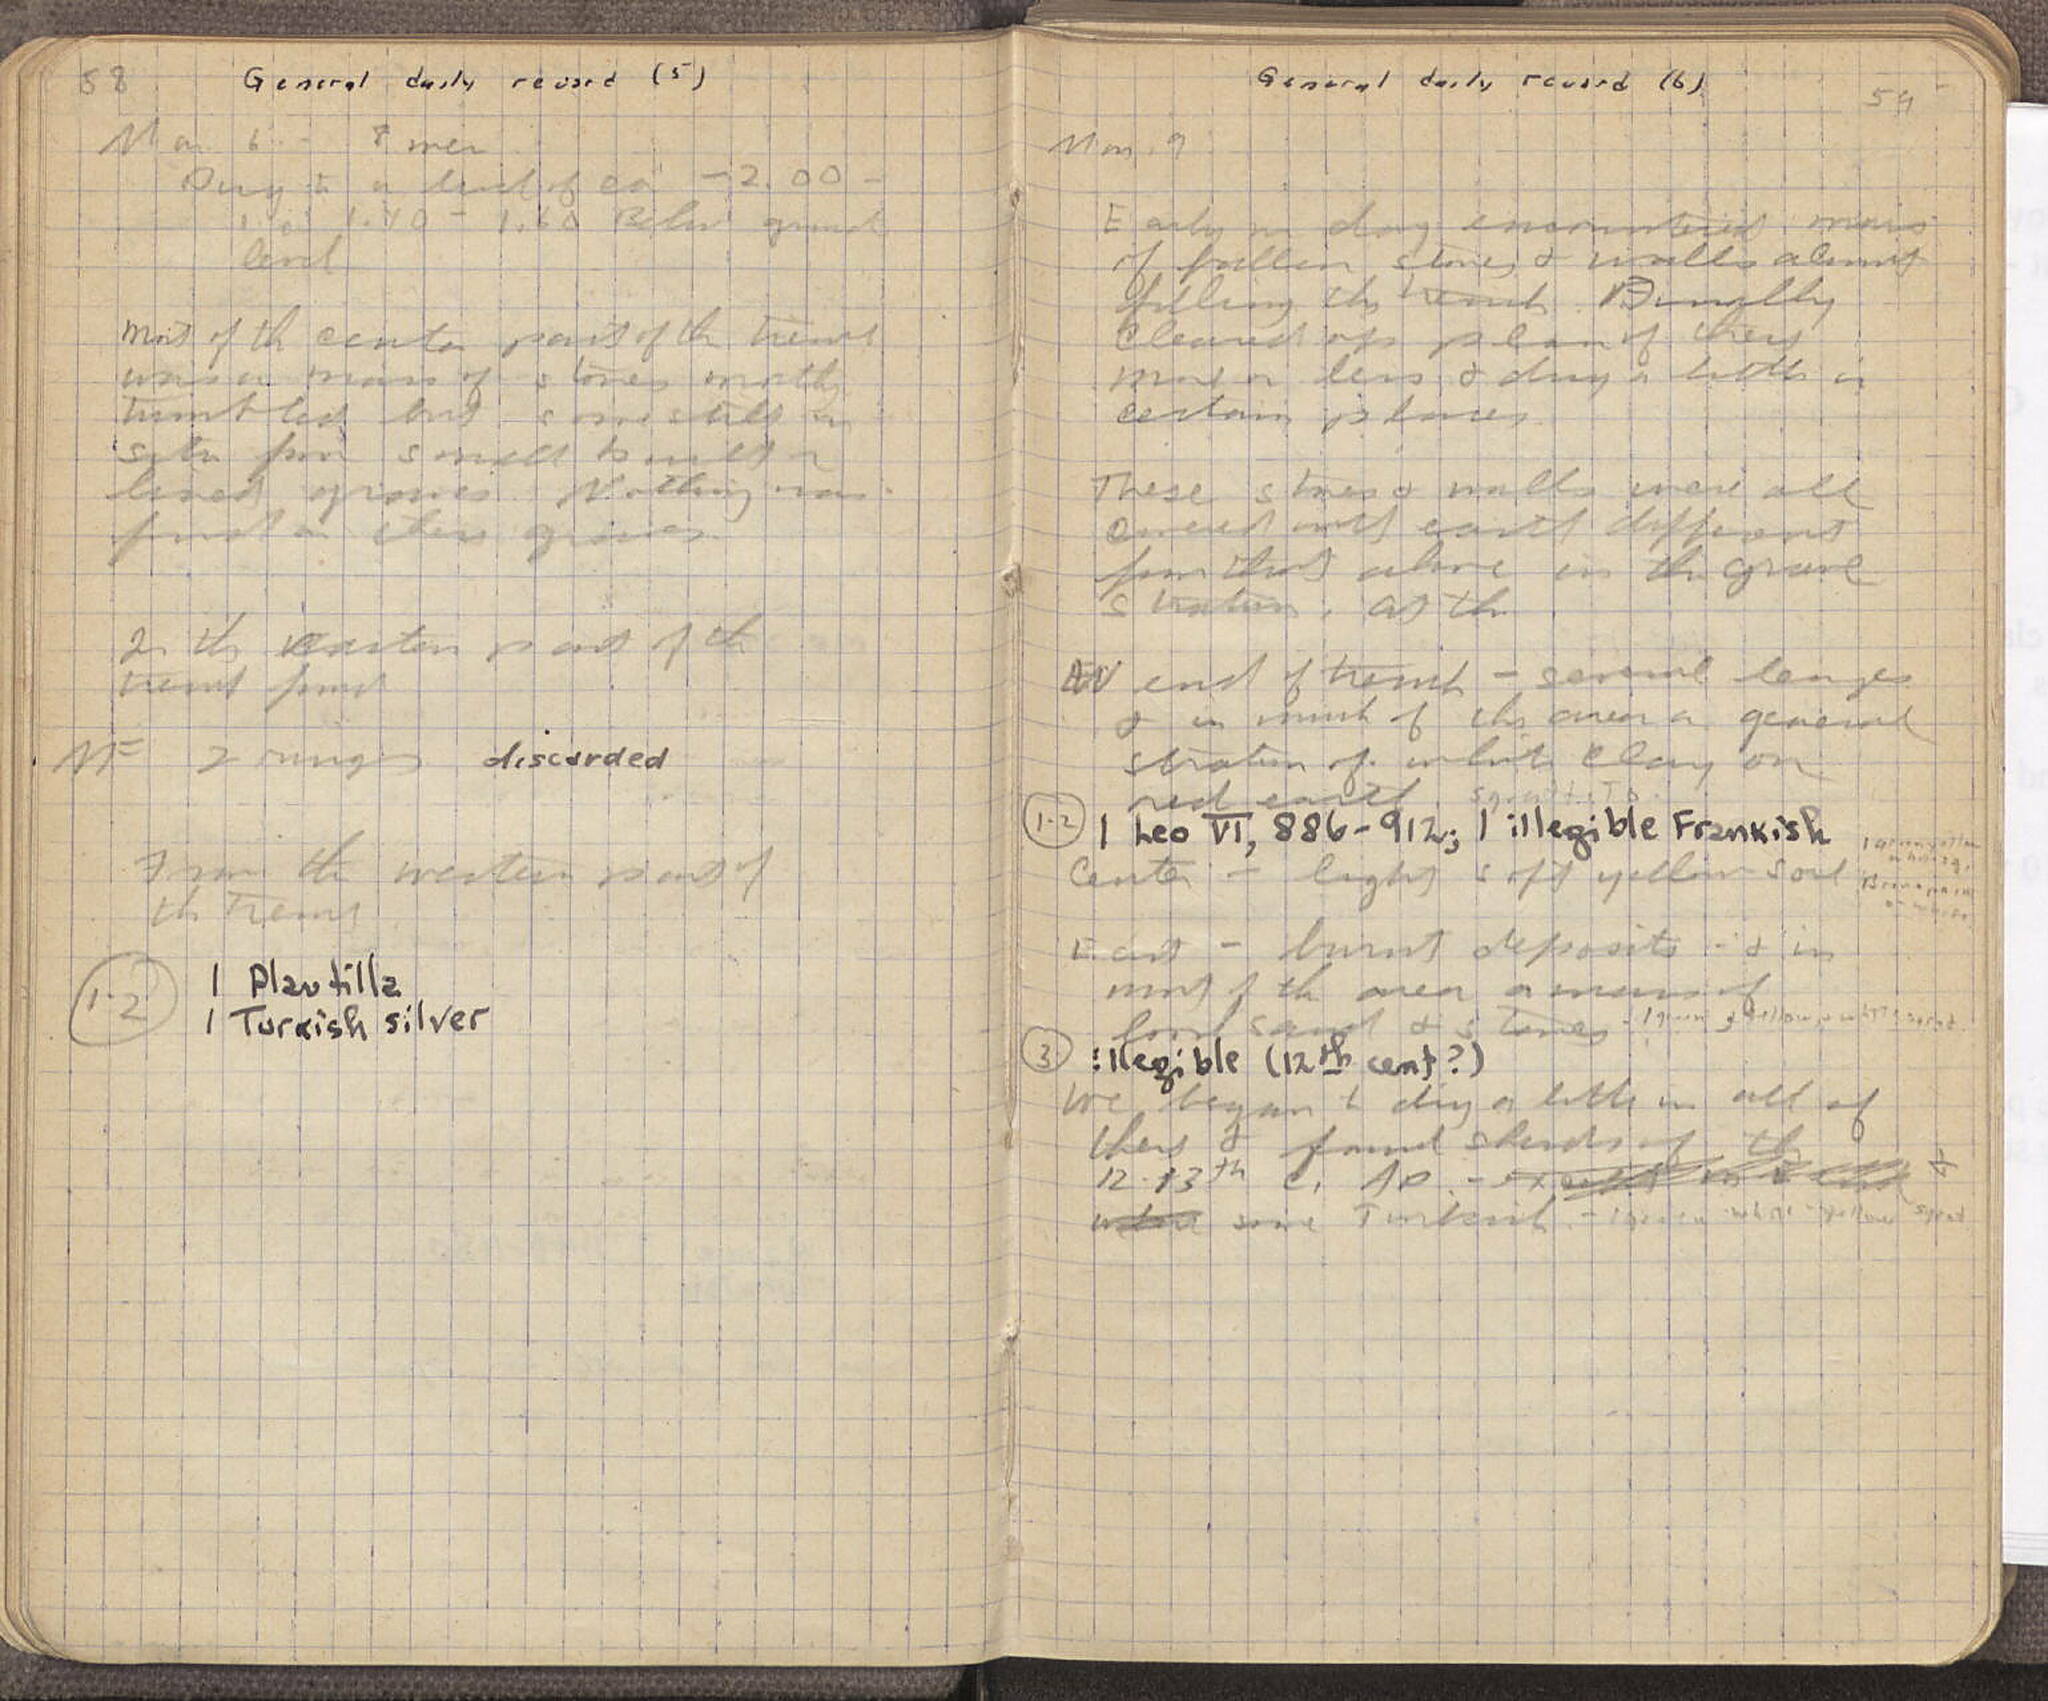 58
General daily record (5)
Mar. 6 - 8 men
Dug to a level of ca -2.00 -
i.e. 1.40 - 1.60 Below ground
level
Most of the center part of the trench
was a mass of stones mostly
tumbled but some still in
situ from small built or
lined graves. Nothing was
found in these graves.
In the eastern part of the
trench found
NF 2 rings discarded
From the western part of
the trench
1-2 1 Plautilla
1 Turkish silver
General daily record (6)
59
Mar. 9
Early in day encountered mass
of fallen stones & walls almost
filling the trench. Finally
cleared up plan of these
more or less & dug a little in
certain places.
These stones & walls were all
covered with earth different
from that above in the grave
stratum. At the
W end of trench - several
& in much of this area a general
stratum of white clay on
red earth
1-2 1 Leo VI, 886-912; 1 illegible Frankish
Center - light soft yellow soil
East - burnt deposits - & in
most of the area a mass of
sand & stones - 1 green & yellow on white sgraf.
3 illegible (12th cent?)
We began to dig a little in all of
these & found sherds of the
12-13th c. AD - &
some Turkish. - 1 green - white - yellow sgraf.